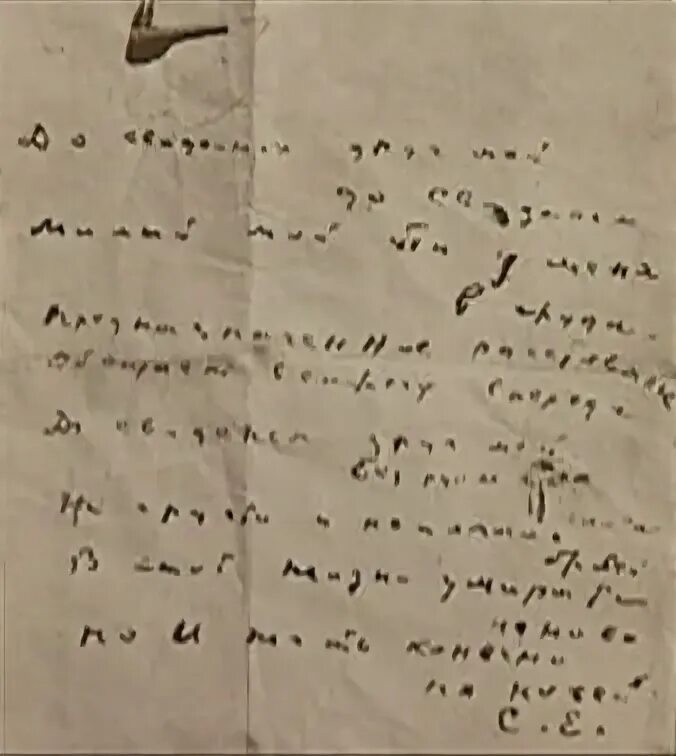 До свиданья друг мой
до свиданья
Милый мой ты у меня
в груди.
Предназначенное расставанье
Обещает встречу впереди
До свиданья друг мой
без руки
Не грусти и не печаль
бровей
В этой жизни умирать
не ново
но и жить конечно
не новей
С.Е.